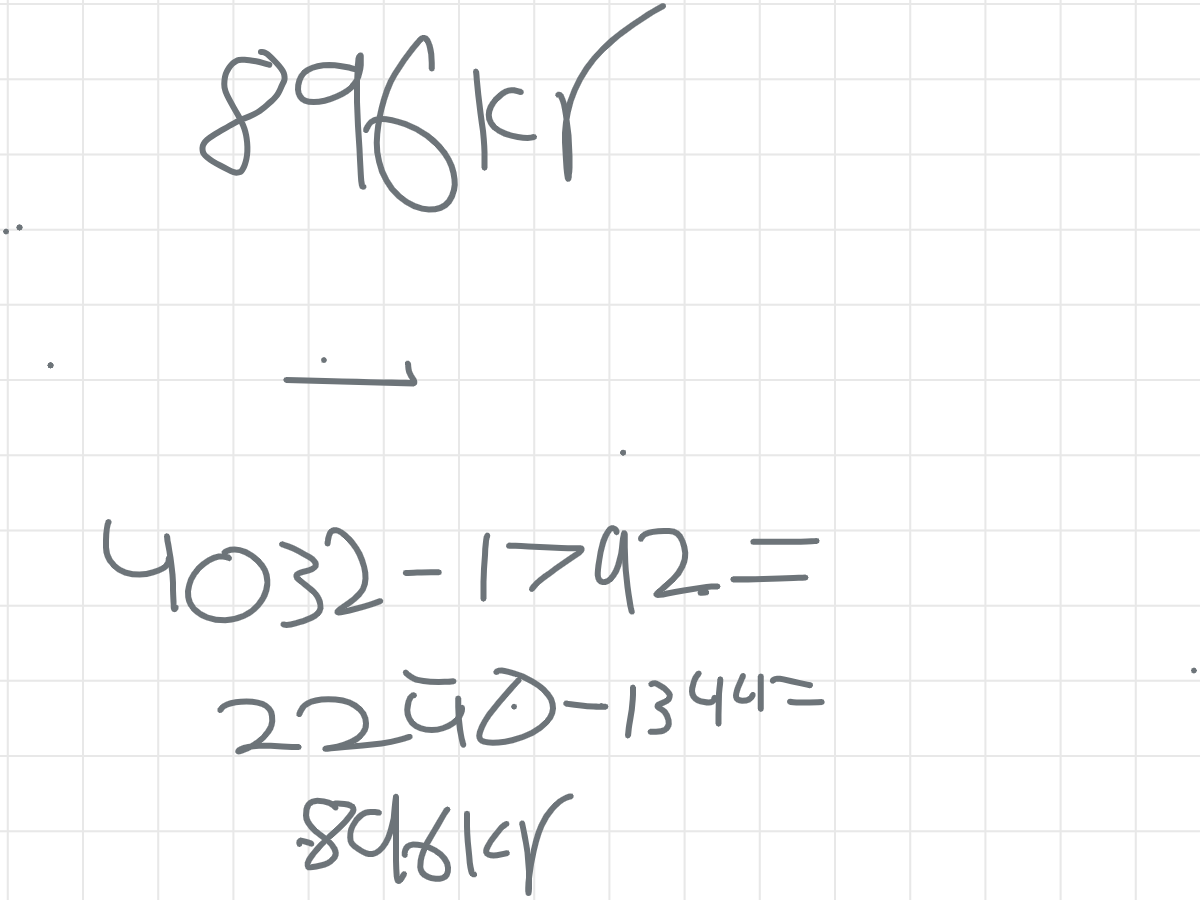 896kr
4032-1792=
2240-1344=
896kr